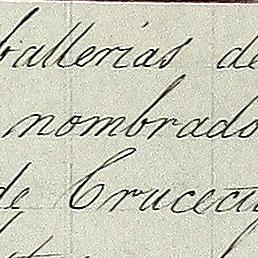 ballerias de
nombrado
de Crucecy